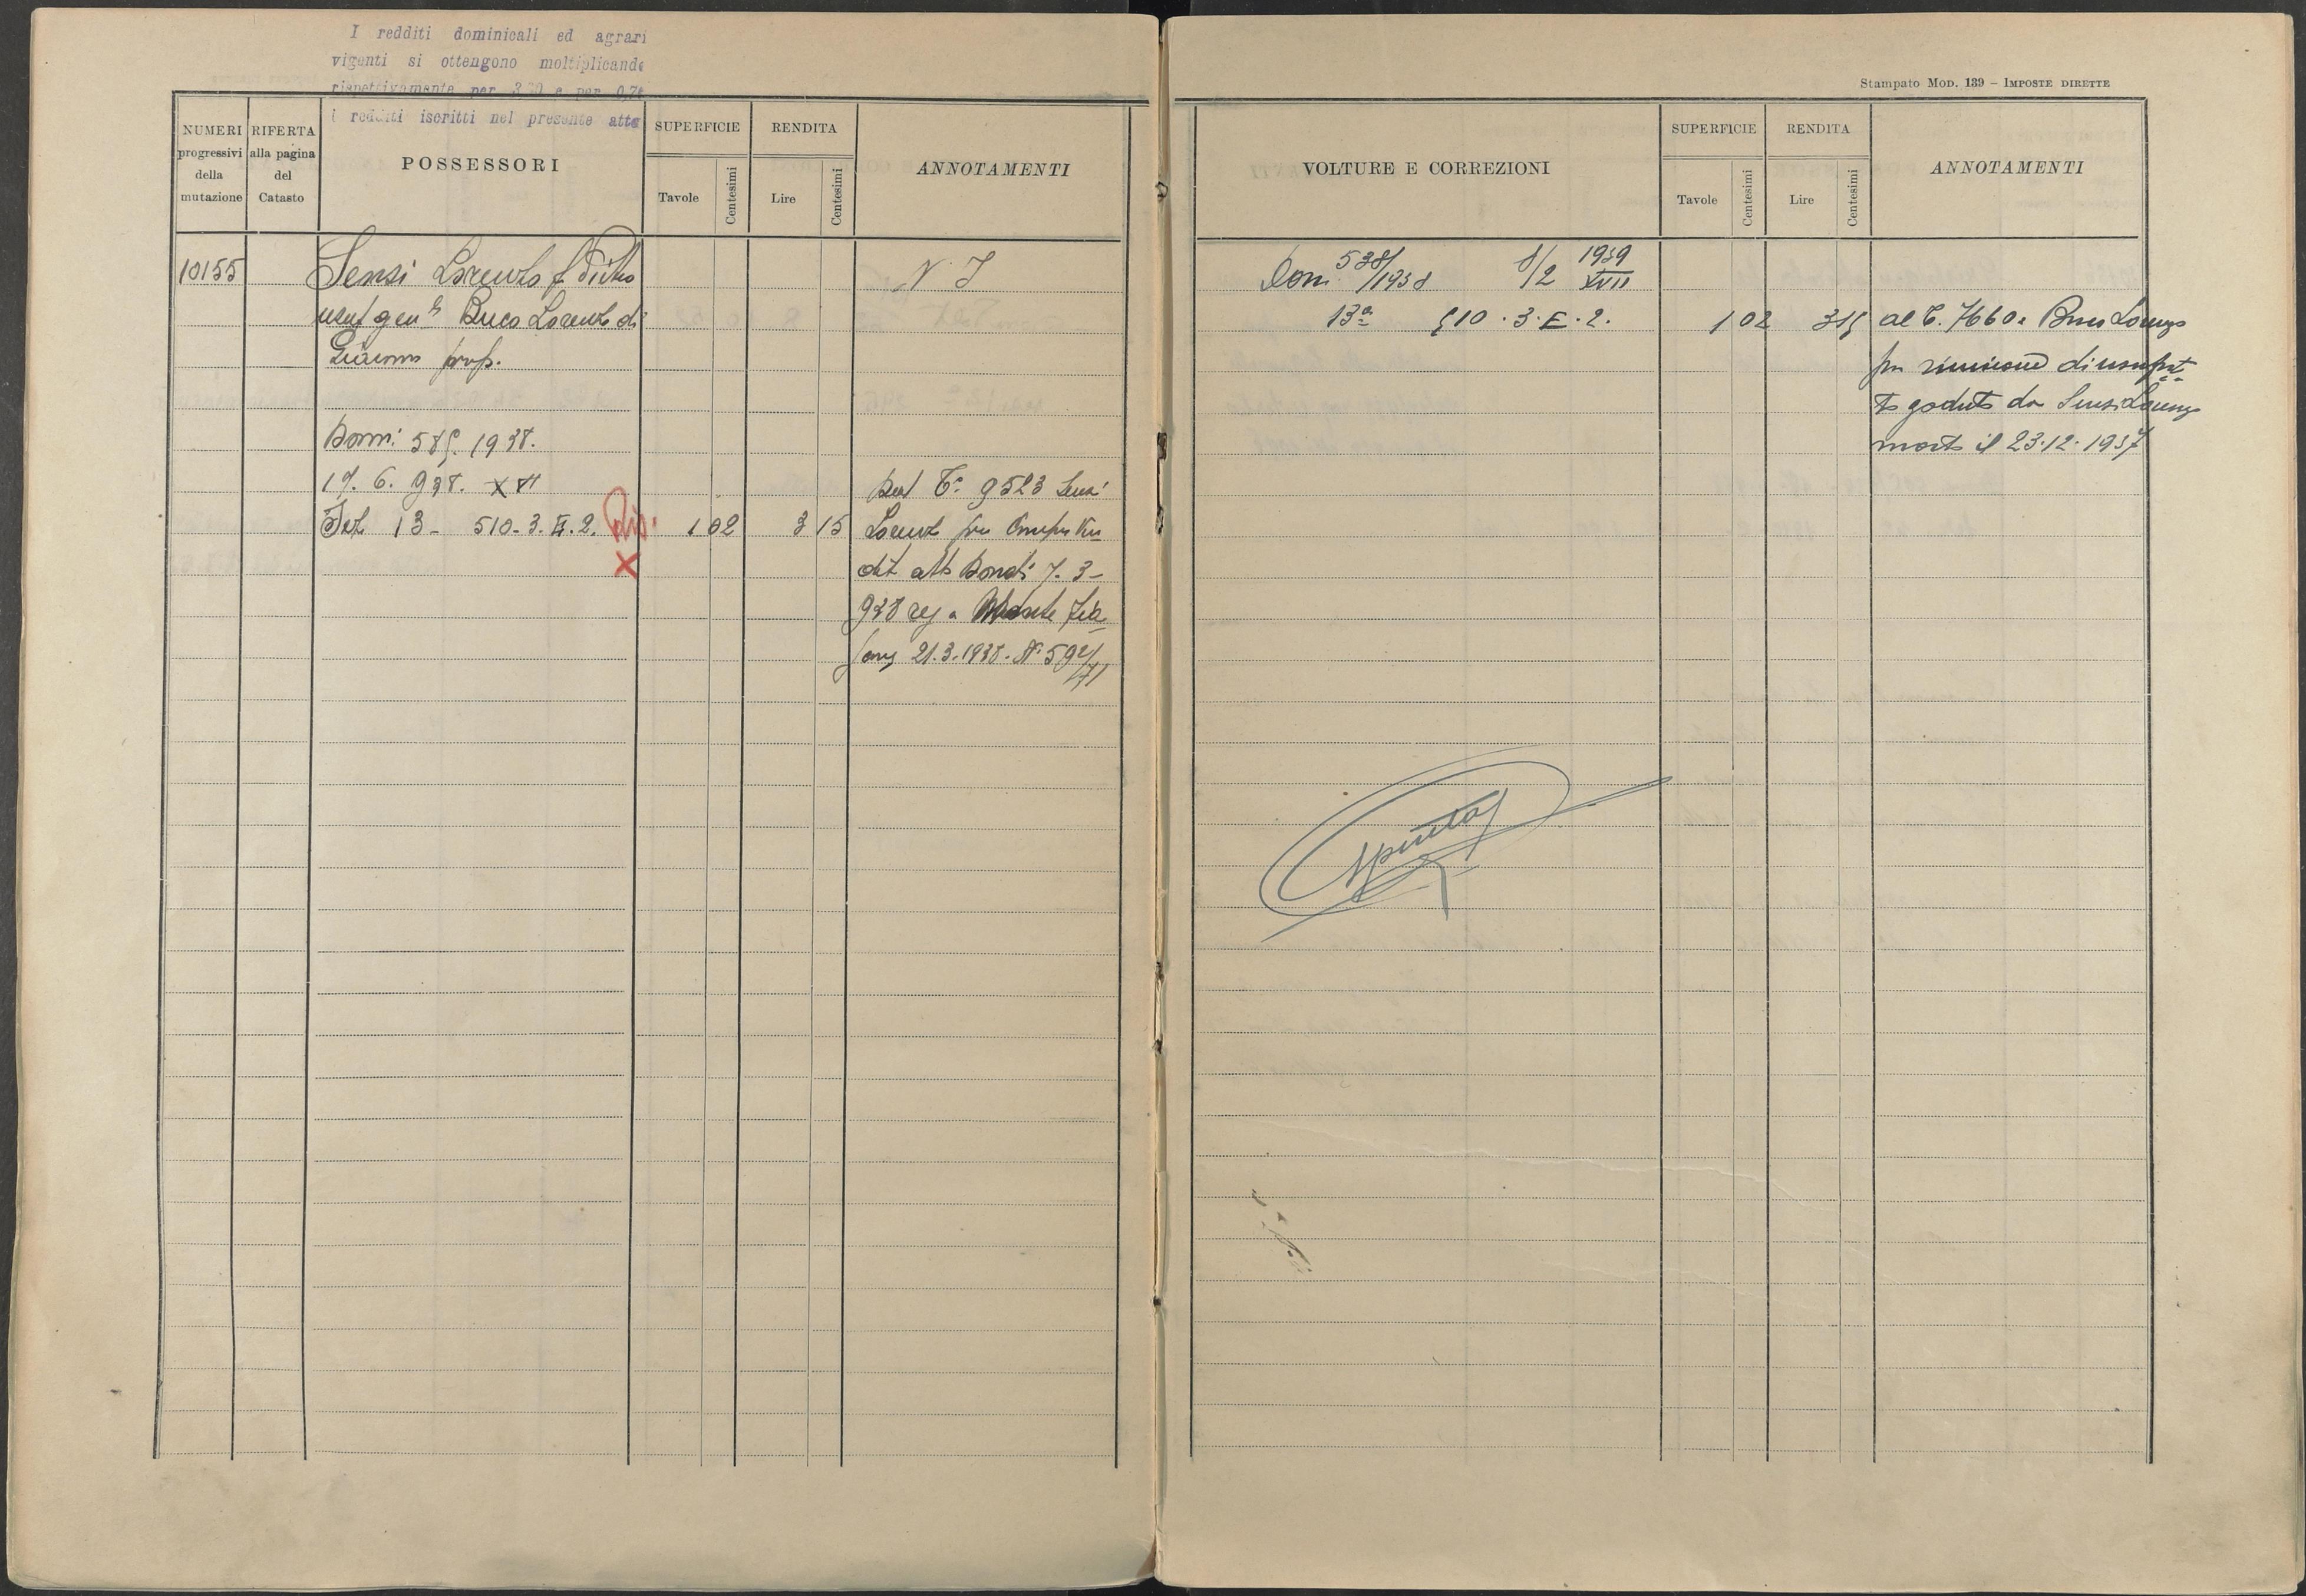 I redditi dominicali ed agrari
vigenti si ottengono moltiplicando
rispettivamente per 3,20 e per 0,70
i redditi iscritti nel presente atto
NUMERI
progressivi
della
mutazione
RIFERTA
alla pagina
del
Catasto
POSSESSORI
SUPERFICIE
Tavole
Centesimi
RENDITA
Lire
Centesimi
ANNOTAMENTI
10155
Sensi Lorenzo f Pietro
N I
usuf gen Buco Lorenzo di
Giacomo prop.
Dom: 585. 1938.
17. 6. 938. XVI
Sez 13 - 510-3.E.2. 1 02 3 15
Dal C. 9523 Sensi
Lorenzo per
atto Bonati 7.3-
938 reg a Monte Fia
21.3.1938. N. 592/71
Stampato MOD. 139 – IMPOSTE DIRETTE
VOLTURE E CORREZIONI
SUPERFICIE
Tavole
Centesimi
RENDITA
Lire
Centesimi
ANNOTAMENTI
Dom. 538/1938 8/2 1939 XVII
13a 510.3.E.2. 1 02 3 15 al C. 7660 a Buco Lorenzo
per riunione di usufrut
to goduto da Sensi Lorenzo
morto il 23.12.1937
Spunta